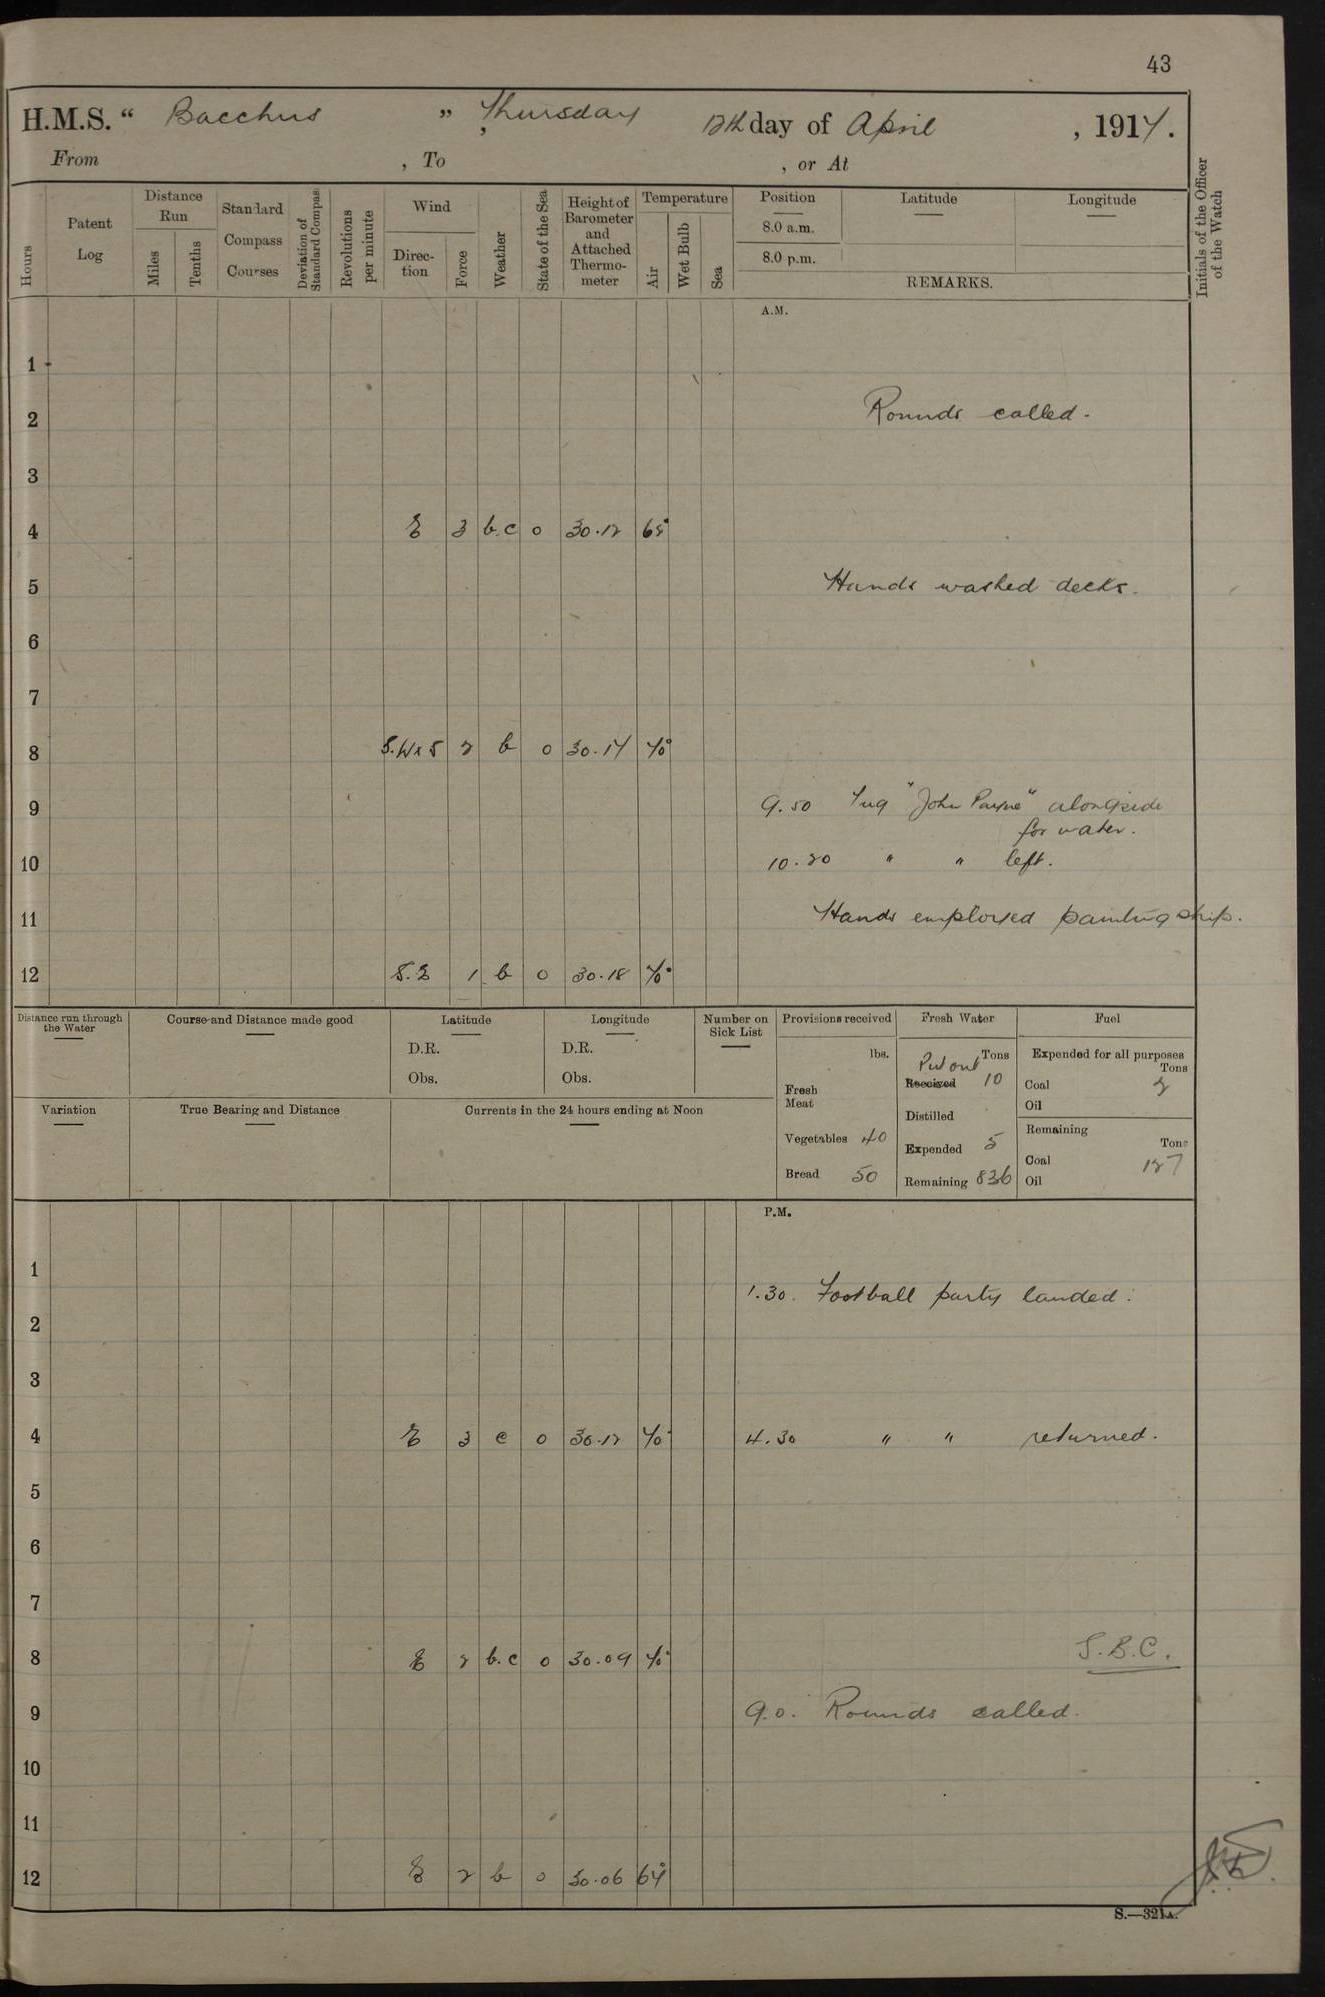 43
H.M.S. “ Bacchus ” , Thursday 12th day of April , 1917.
From , To , or At
Hours
Patent Log
Distance Run
Miles
Tenths
Standard Compass Courses
Deviation of Standard Compass
Revolutions per minute
Wind
Direction
Force
Weather
State of the Sea
Height of Barometer and Attached Thermometer
Temperature
Air
Wet Bulb
Sea
Position Latitude Longitude
8.0 a.m.
8.0 p.m.
REMARKS.
Initials of the Officer of the Watch
A.M.
1
2 Rounds called.
3
4 E 3 b.c 0 30.12 65°
5 Hands washed decks.
6
7
8 S.W x S 2 b 0 30.17 70°
9 9.50 Tug "John Payne" alongside
for water.
10 10.20 " " left.
11 Hands employed painting ship.
12 S.E 1 b 0 30.18 70°
Distance run through the Water
Course and Distance made good
Latitude
D.R.
Obs.
Longitude
D.R.
Obs.
Number on Sick List
Variation
True Bearing and Distance
Currents in the 24 hours ending at Noon
Provisions received
lbs.
Fresh Meat
Vegetables 40
Bread 50
Fresh Water
Tons
Put out
Received 10
Distilled
Expended 5
Remaining 836
Fuel
Expended for all purposes
Tons
Coal 2
Oil
Remaining
Tons
Coal 127
Oil
P.M.
1
1.30. Football party landed.
2
3
4 E 3 c 0 30.12 70° 4.30 " " returned.
5
6
7
8 E 2 b.c 0 30.09 70° S.B.C.
9 9.0. Rounds called.
10
11
12 E 2 b 0 30.06 67°
S.—321A.